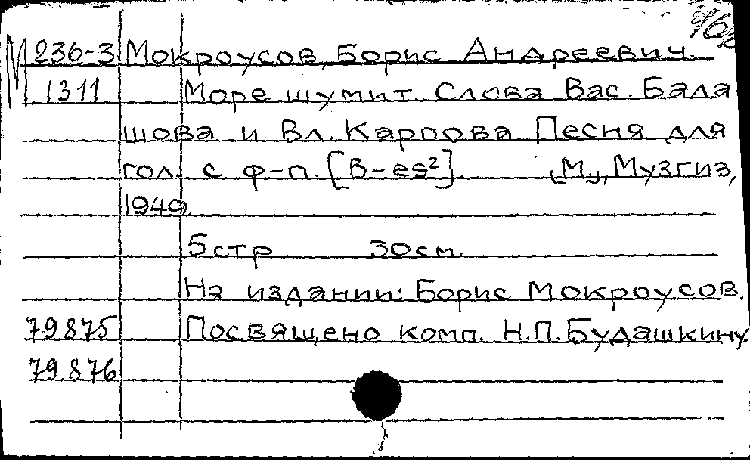 М 236-3 Мокроусов, Борис Андреевич.
1311 Море шумит. Слова Вас. Бала
шова и Вл. Карпова Песня для
гол. с ф-п. [B-es²]. [М.], Музгиз,
1949.
5 стр 30 см.
На издании: Борис Мокроусов.
79875 Посвящено комп. Н.П. Будашкину
79876